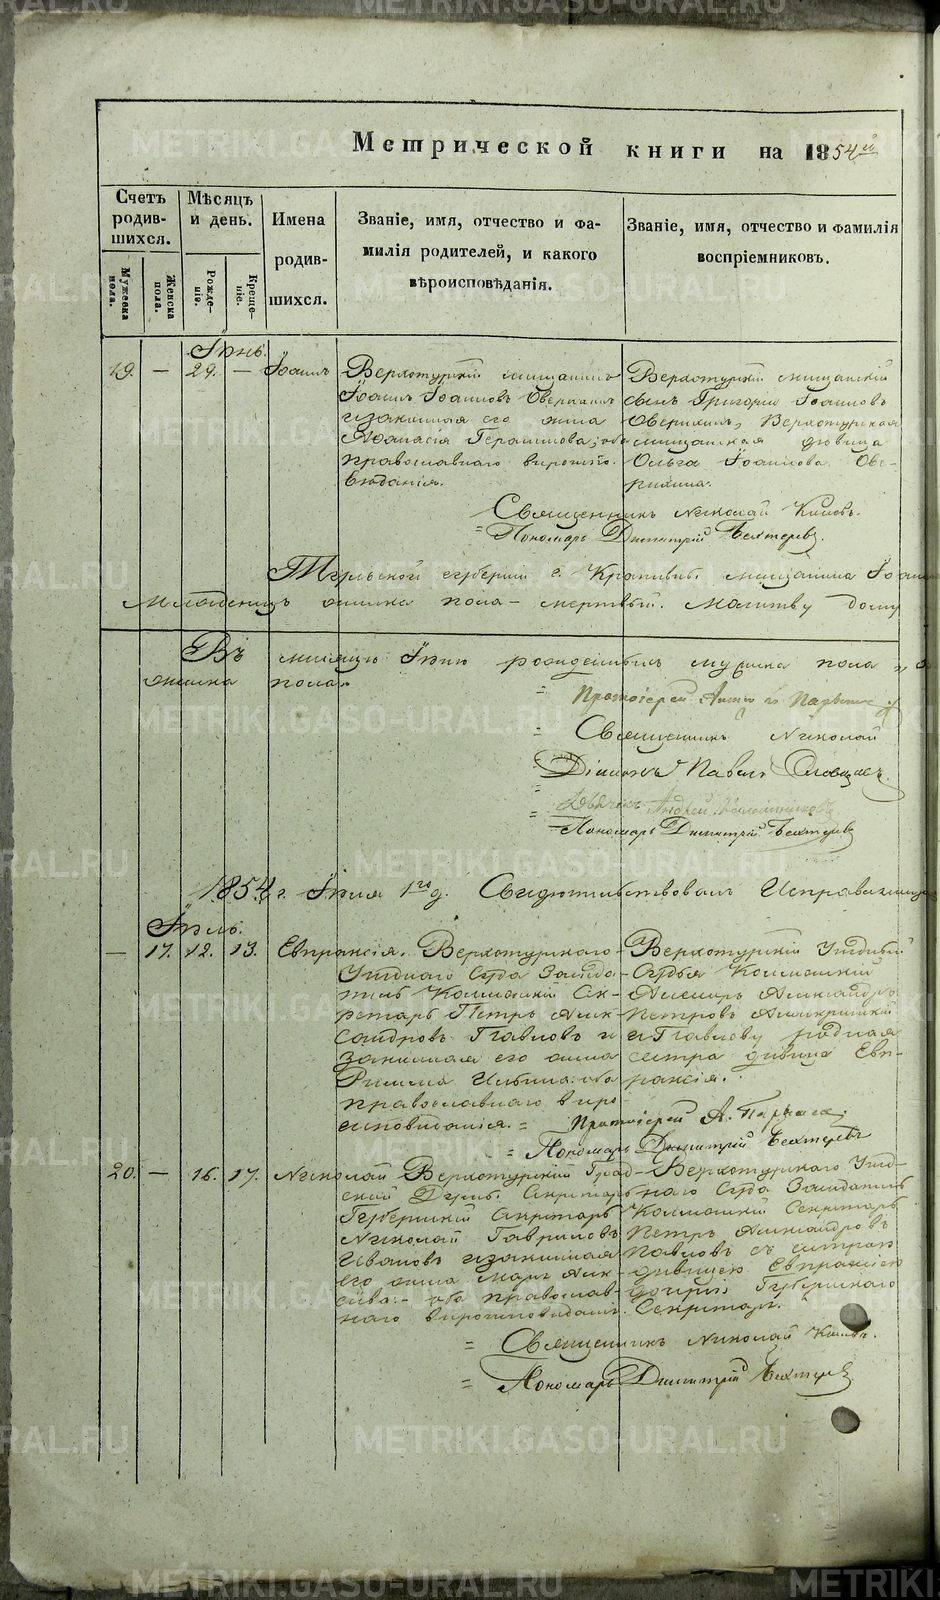 METRIKI.GASO-URAL.RU
Метрической книги на 1854й
Счетъ родившихся.
Мѣсяцъ и день.
Имена родившихся.
Званіе, имя, отчество и фамилія родителей, и какого вѣроисповѣданія.
Званіе, имя, отчество и фамилія воспріемниковъ.
Мужеска пола.
Женска пола.
Рожденіе.
Крещеніе.
Іюнь.
19. — 29. — Іоаннъ
Верхотурскій мѣщанинъ
Іоаннъ Іоанновъ
и законная его жена
Герасимова; оба
православнаго вѣроиспо-
вѣданія.
Верхотурскій мѣщанскій
сынъ Григорій Іоанновъ
Верхотурская
мѣщанская дѣвица
Ольга Іоаннова Ове-
рихина.
Священникъ Николай
Пономарь Димитрій Бехтеревъ.
Тульской губерніи г. Крапивны мѣщанина
Младенецъ женска пола - мертвый. Молитву
Въ мѣсяцѣ Іюнѣ рожденныхъ мужска пола
женска пола
Протоіерей
Священникъ Николай
Діаконъ Павелъ Словцовъ.
Дьячекъ Андрей
Пономарь Димитрій Бехтеревъ
1854 г. Іюля 1го д. Свидѣтельствовалъ
Іюль.
— 17. 12. 13. Евпраксія.
Верхотурскаго
Уѣзднаго Суда Засѣда-
тель Коллежскій Се-
кретарь Петръ Алек-
сандровъ Павловъ и
законная его жена
Римма Ильина: оба
православнаго вѣро-
исповѣданія.
Верхотурскій Уѣздный
Судья Коллежскій
Александръ
Петровъ
и Павлову родная
сестра дѣвица Евп-
раксія.
Протоіерей А.
Пономарь Димитрій Бехтеревъ
20. — 16. 17. Николай
Верхотурскій Град-
ской Думы Секретарь
Губернскій Секретарь
Николай Гавриловъ
Ивановъ и законная
его жена Алек-
сѣева - оба православ-
наго вѣроисповѣданія.
Верхотурскаго Уѣзд-
наго Суда Засѣдатель
Коллежскій Секретарь
Петръ Александровъ
Павловъ съ сестрою
дѣвицею Евпраксіею
дочерію Губернскаго
Секретаря.
Священникъ Николай
Пономарь Димитрій Бехтеревъ